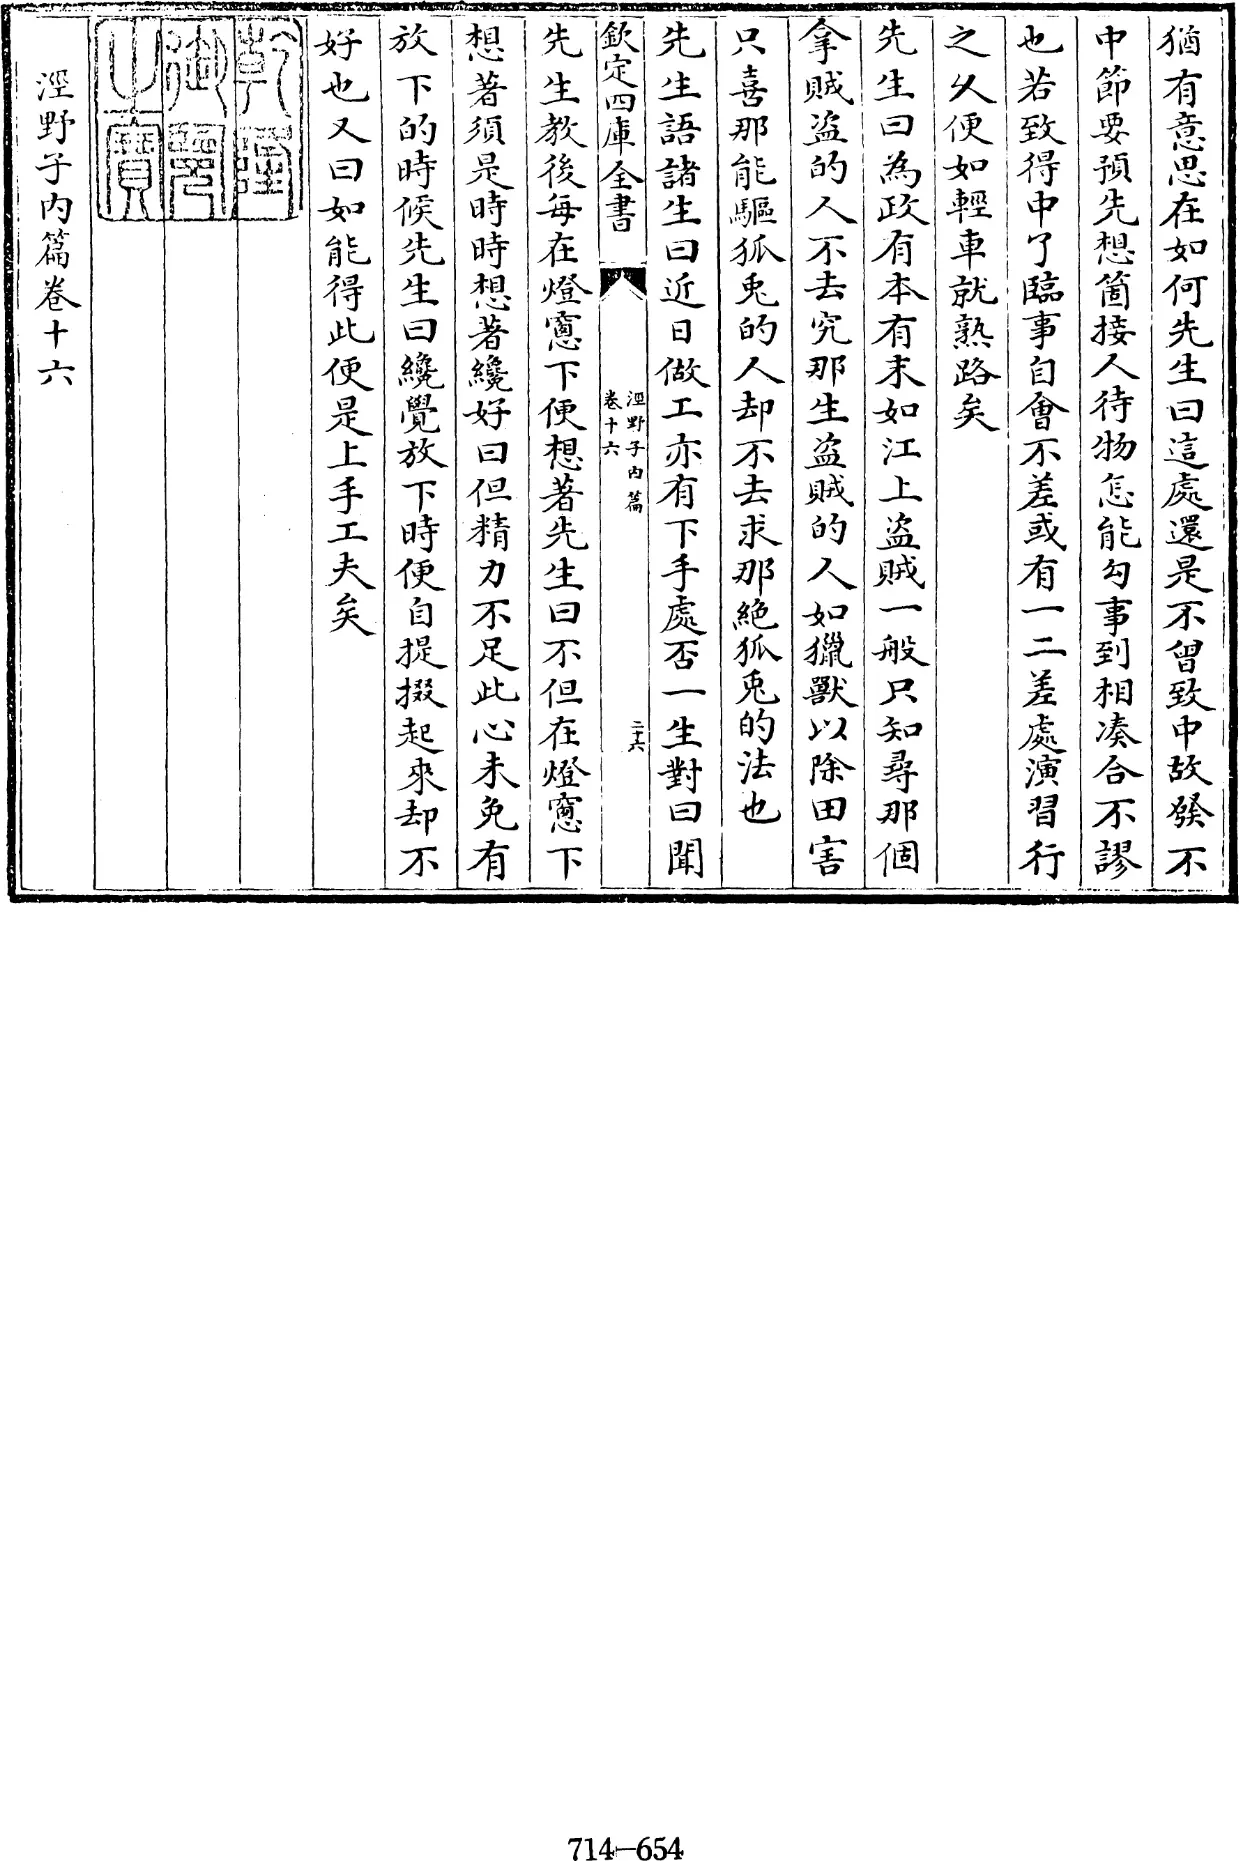 猶有意思在如何先生曰這處還是不曾致中故發不
中節要預先想箇接人待物怎能勾事到相凑合不謬
也若致得中了臨事自會不差或有一二差處演習行
之乆便如輕車就熟路矣
先生曰為政有本有末如江上盗賊一般只知尋那個
拿賊盗的人不去究那生盗賊的人如獵獸以除田害
只喜那能驅狐兎的人却不去求那絶狐兎的法也
先生語諸生曰近日做工亦有下手處否一生對曰聞
欽定四庫全書
涇野子内篇
卷十六
二十六
先生教後每在燈窻下便想著先生曰不但在燈窻下
想著須是時時想著纔好曰但精力不足此心未免有
放下的時候先生曰纔覺放下時便自提掇起來却不
好也又曰如能得此便是上手工夫矣
乾隆
御覽
之寶
涇野子内篇卷十六
714-654